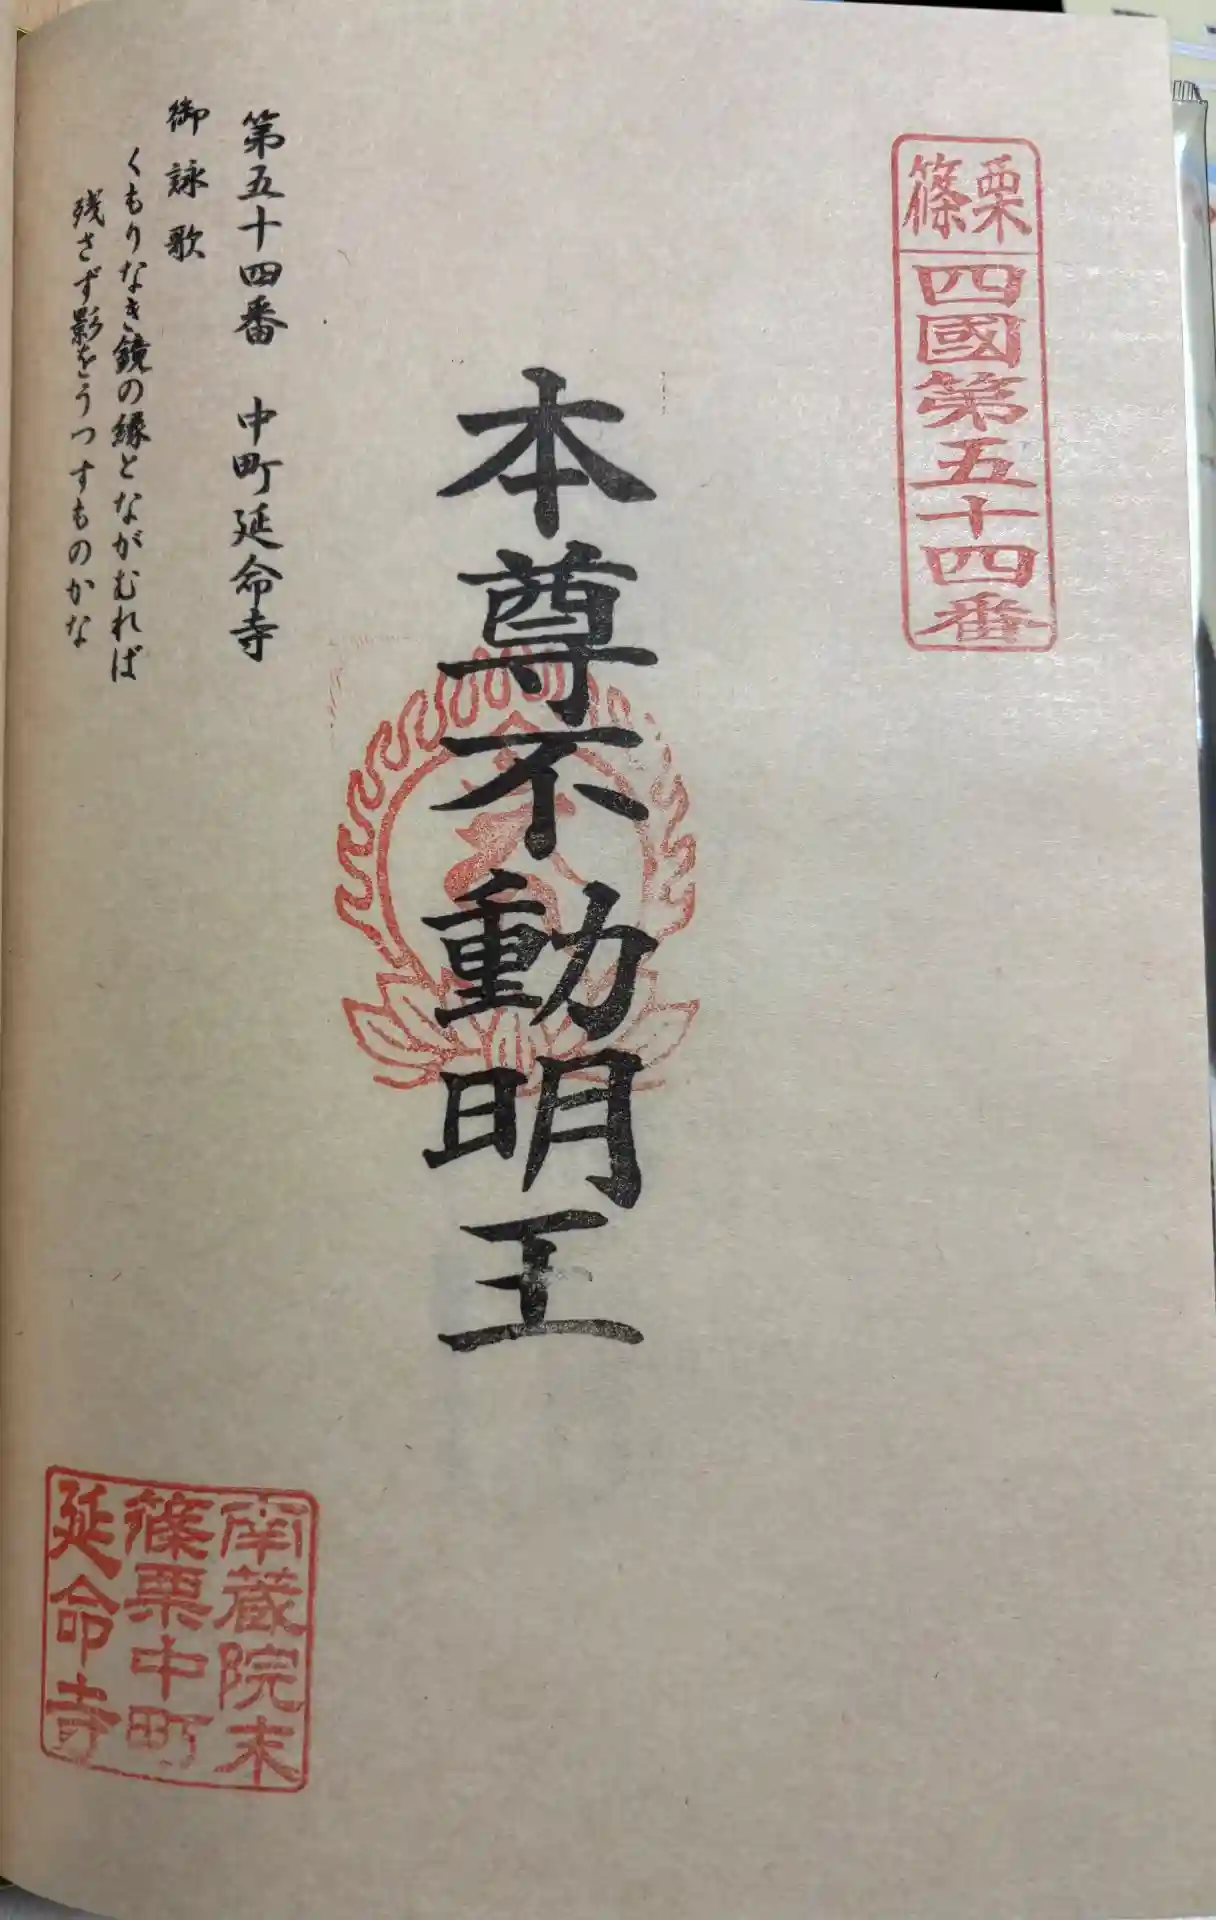 篠栗
四國第五十四番
本尊不動明王
第五十四番　中町延命寺
御詠歌
くもりなき鏡の縁とながむれば
残さず影をうつすものかな
南蔵院末
篠栗中町
延命寺